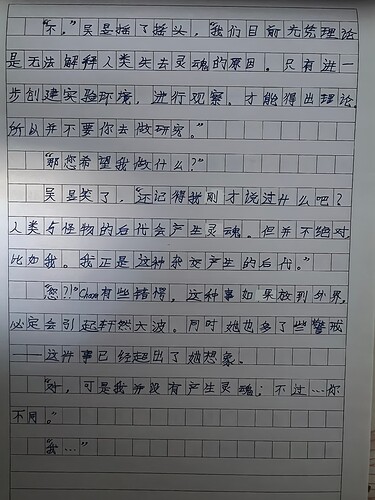 “不。”吴昱摇了摇头，“我们目前光凭理论
是无法解释人类失去灵魂的原因。只有进一
步创建实验环境，进行观察，才能得出理论。
所以并不要你去做研究。”
“那您希望我做什么？”
吴昱笑了，“还记得我刚才说过什么吧？
人类与怪物的后代会产生灵魂。但并不绝对，
比如我。我正是这种杂交产生的后代。”
“您?!”Chara有些错愕，这种事如果放到外界，
必定会引起轩然大波。同时她也多了些警戒
——这件事已经超出了她想象。
“对，可是我并没有产生灵魂；不过…你
不同。”
“我…”